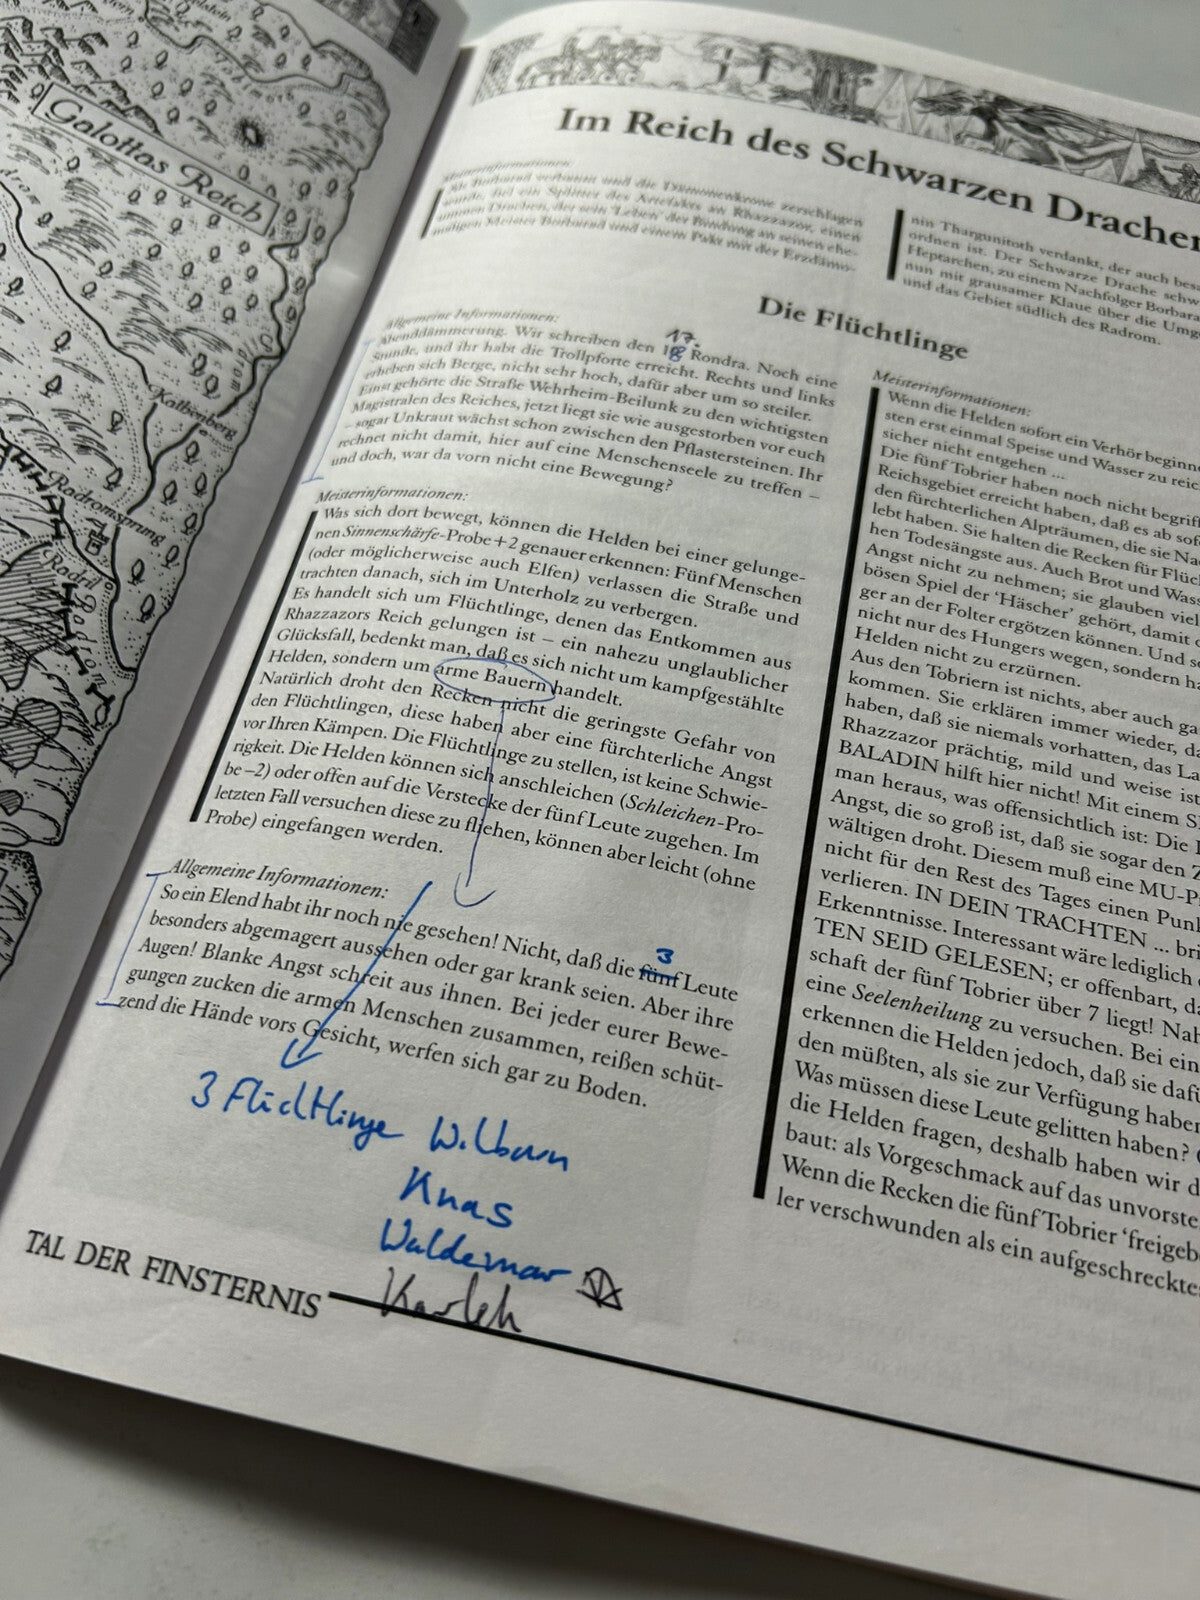 Galottas Reich
Tobimora
Kalbenberg
Radromsprung
Radril
Radrom
Im Reich des Schwarzen Drachen
Meisterinformationen:
Als Borbarad verbannt und die Dämonenkrone zerschlagen
wurde, fiel ein Splitter des Artefakts an Rhazzazor, einen
untoten Drachen, der sein 'Leben' der Bindung an seinen ehe-
maligen Meister Borbarad und einem Pakt mit der Erzdämo-
nin Thargunitoth verdankt, der auch
ordnen ist. Der Schwarze Drache
Heptarchen, zu einem Nachfolger
nun mit grausamer Klaue über die
und das Gebiet südlich des Radrom.
Die Flüchtlinge
Allgemeine Informationen:
17.
Abenddämmerung. Wir schreiben den 18 Rondra. Noch eine
Stunde, und ihr habt die Trollpforte erreicht. Rechts und links
erheben sich Berge, nicht sehr hoch, dafür aber um so steiler.
Einst gehörte die Straße Wehrheim-Beilunk zu den wichtigsten
Magistralen des Reiches, jetzt liegt sie wie ausgestorben vor euch
– sogar Unkraut wächst schon zwischen den Pflastersteinen. Ihr
rechnet nicht damit, hier auf eine Menschenseele zu treffen –
und doch, war da vorn nicht eine Bewegung?
Meisterinformationen:
Was sich dort bewegt, können die Helden bei einer gelunge-
nen Sinnenschärfe-Probe+2 genauer erkennen: Fünf Menschen
(oder möglicherweise auch Elfen) verlassen die Straße und
trachten danach, sich im Unterholz zu verbergen.
Es handelt sich um Flüchtlinge, denen das Entkommen aus
Rhazzazors Reich gelungen ist – ein nahezu unglaublicher
Glücksfall, bedenkt man, daß es sich nicht um kampfgestählte
Helden, sondern um arme Bauern handelt.
Natürlich droht den Recken nicht die geringste Gefahr von
den Flüchtlingen, diese haben aber eine fürchterliche Angst
vor Ihren Kämpen. Die Flüchtlinge zu stellen, ist keine Schwie-
rigkeit. Die Helden können sich anschleichen (Schleichen-Pro-
be–2) oder offen auf die Verstecke der fünf Leute zugehen. Im
letzten Fall versuchen diese zu fliehen, können aber leicht (ohne
Probe) eingefangen werden.
Allgemeine Informationen:
So ein Elend habt ihr noch nie gesehen! Nicht, daß die fünf Leute
3
besonders abgemagert aussehen oder gar krank seien. Aber ihre
Augen! Blanke Angst schreit aus ihnen. Bei jeder eurer Bewe-
gungen zucken die armen Menschen zusammen, reißen schüt-
zend die Hände vors Gesicht, werfen sich gar zu Boden.
3 Flüchtlinge Wilbarn
Knas
Waldemar
TAL DER FINSTERNIS
Meisterinformationen:
Wenn die Helden sofort ein Verhör
sten erst einmal Speise und Wasser zu
sicher nicht entgehen ...
Die fünf Tobrier haben noch nicht
Reichsgebiet erreicht haben, daß es ab
den fürchterlichen Alpträumen, die sie
lebt haben. Sie halten die Recken für
hen Todesängste aus. Auch Brot und
Angst nicht zu nehmen; sie glauben
bösen Spiel der 'Häscher' gehört, damit
ger an der Folter ergötzen können. Und
nicht nur des Hungers wegen, sondern
Helden nicht zu erzürnen.
Aus den Tobriern ist nichts, aber auch
kommen. Sie erklären immer wieder,
haben, daß sie niemals vorhatten, das
Rhazzazor prächtig, mild und weise ist
BALADIN hilft hier nicht! Mit einem
man heraus, was offensichtlich ist: Die
Angst, die so groß ist, daß sie sogar den
wältigen droht. Diesem muß eine
nicht für den Rest des Tages einen
verlieren. IN DEIN TRACHTEN ...
Erkenntnisse. Interessant wäre lediglich
TEN SEID GELESEN; er offenbart,
schaft der fünf Tobrier über 7 liegt!
eine Seelenheilung zu versuchen. Bei
erkennen die Helden jedoch, daß sie
den müßten, als sie zur Verfügung
Was müssen diese Leute gelitten haben?
die Helden fragen, deshalb haben wir
baut: als Vorgeschmack auf das
Wenn die Recken die fünf Tobrier
ler verschwunden als ein